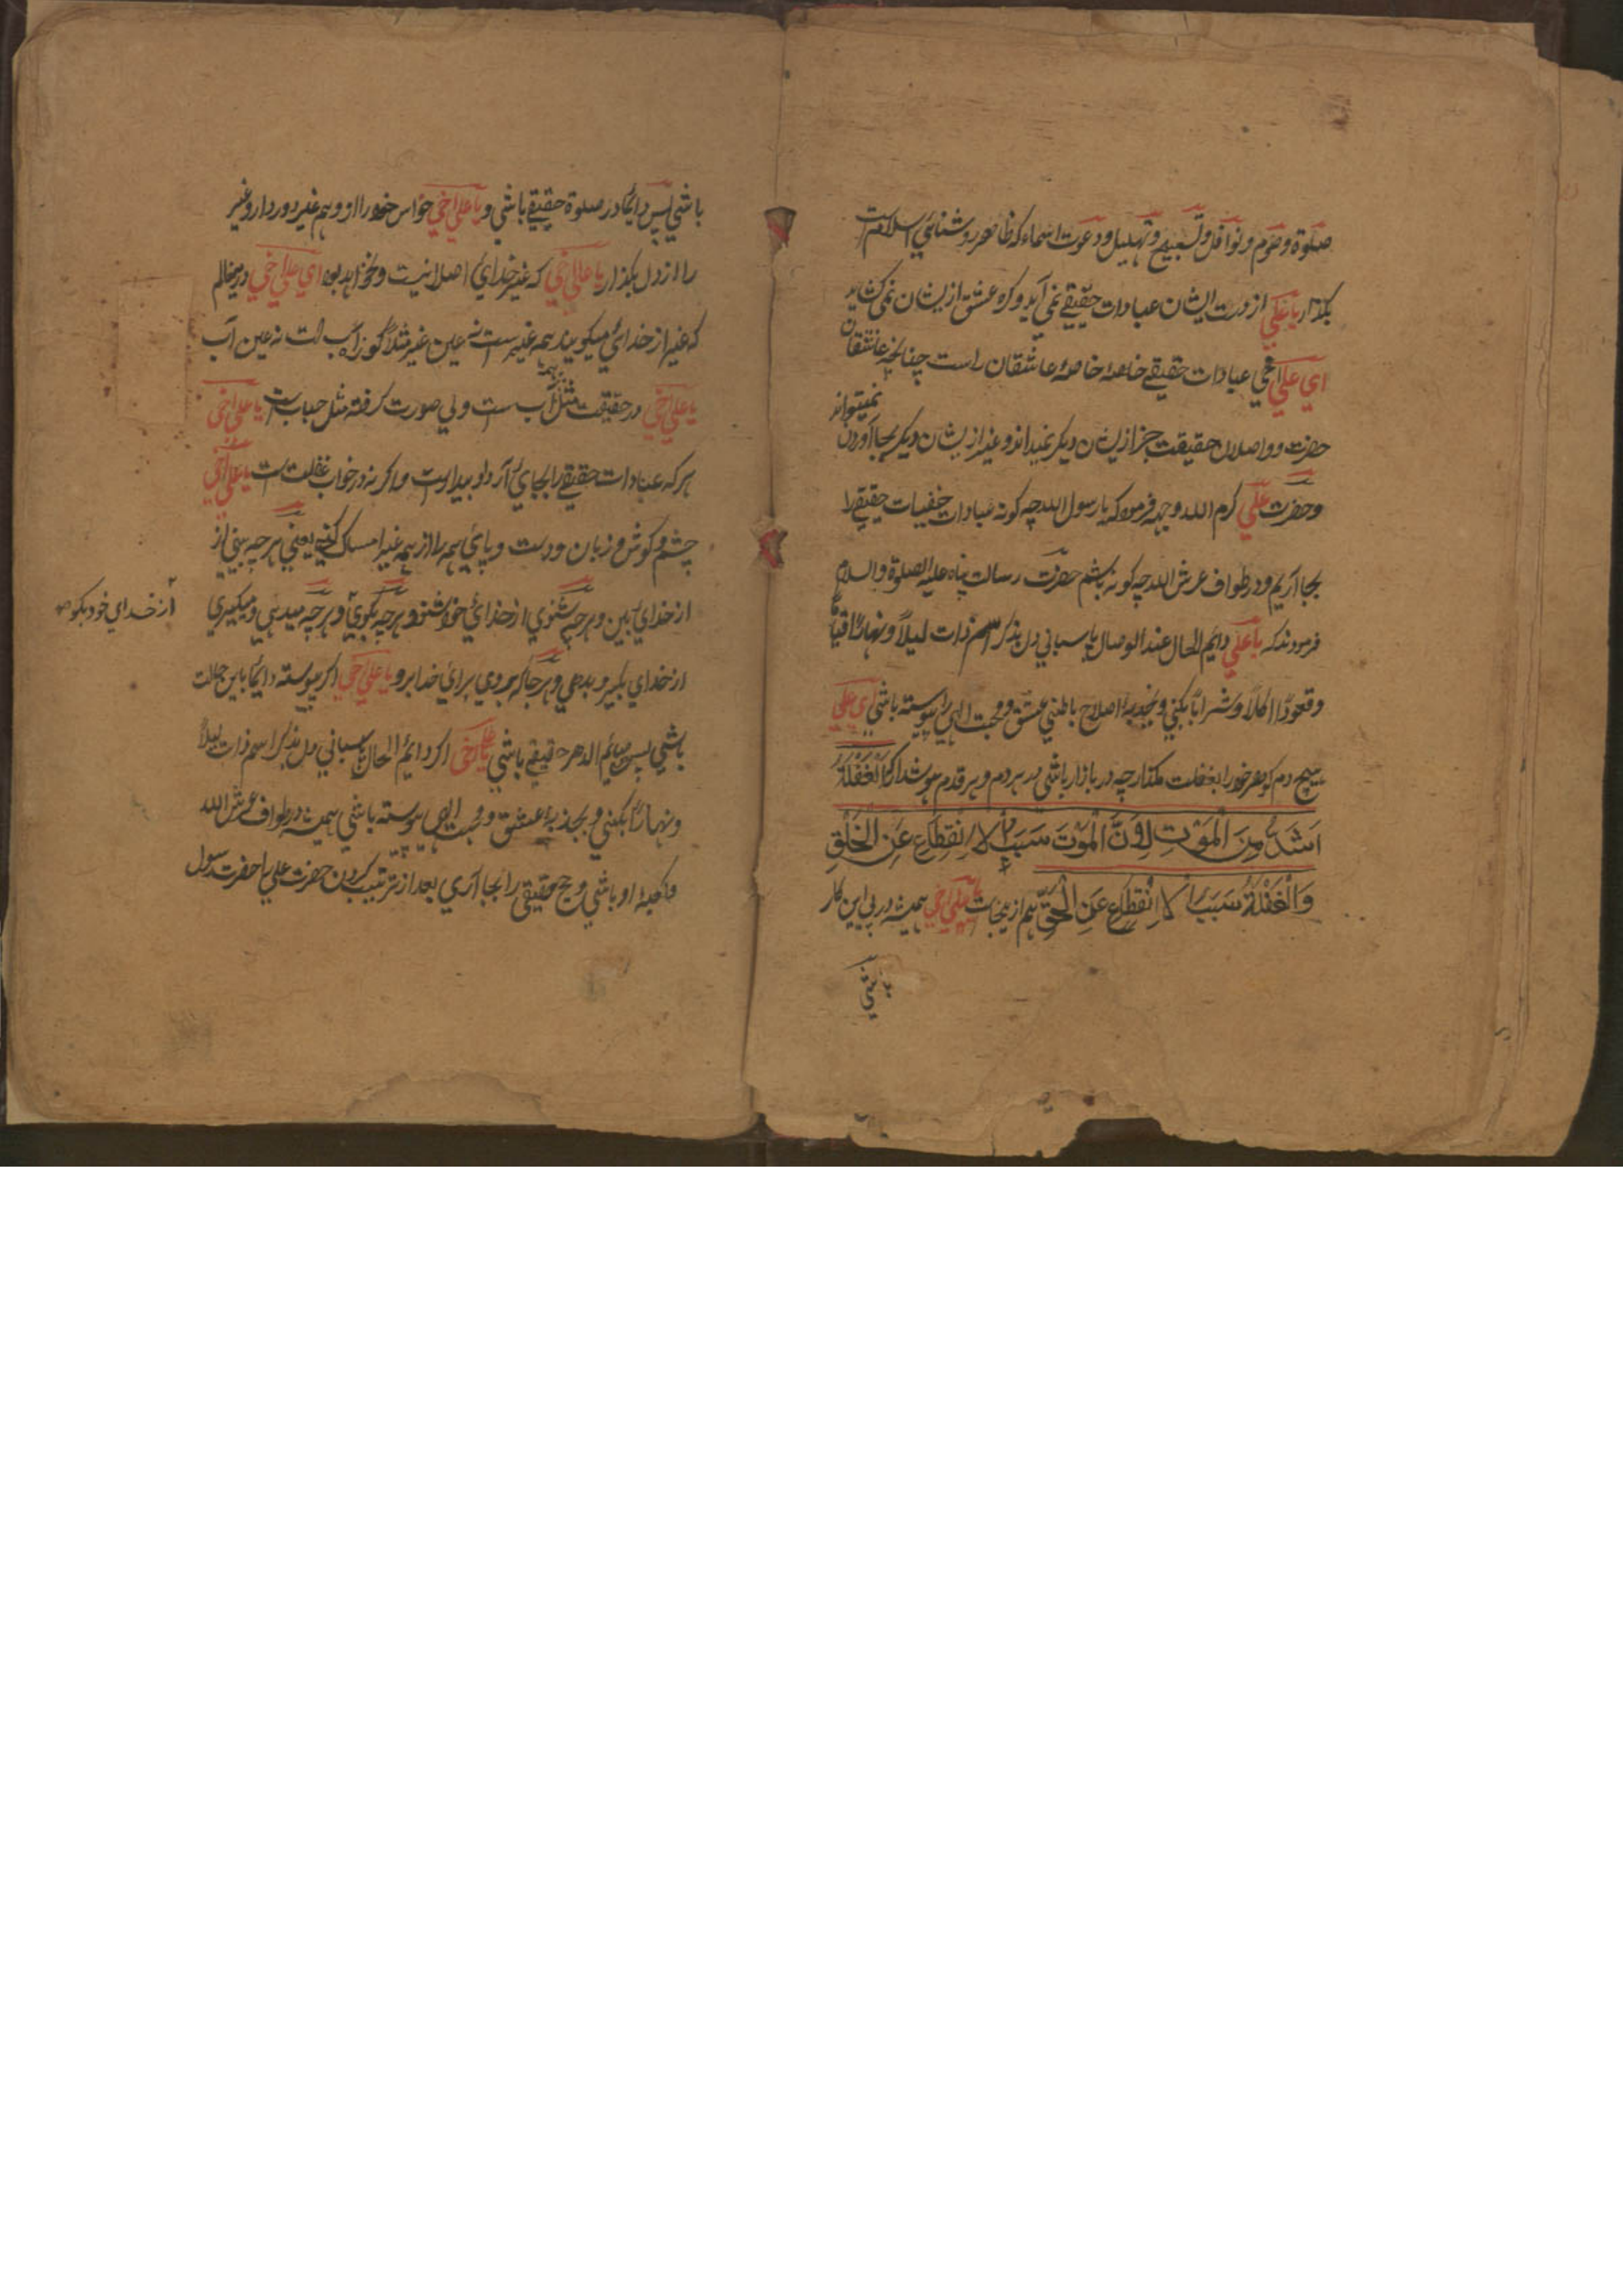 صلوة وصوم ونوافل وتسبیح وتهلیل ودعوت اسماء که ظاهر روشنائي اسلام است
بگذار یا علي از درت ایشان عبادات حقیقے نمي آید وکره عشق ازیشان نمي کشاید
اي علي اخي عبادات حقیقے خاصهٔ خاصهٔ عاشقان راست چنانچه عاشقان
حضرت وواصلان حقیقت جز ازیشان دیکر نمیداند وغیر ازیشان دیکر بجا آوردن نمیتواند
وحضرت علي کرم الله وجهه فرمود که یا رسول الله چه کونه عبادات خفیات حقیقے را
بجا آریم ودر طواف عرش الله چه کونه باشم حضرت رسالت پناه علیه الصلوة والسلام
فرمودند که یا علي دایم الحال عند الوصال پاسباني دل بذکر اسم ذات لیلاً ونهاراً قیاماً
وقعوداً اکلاً وشراباً بکني وبجذبهٔ اصلاح باطني عشق ومحبت الهي را پیوسته باشي اي علي
هیچ دم کوهر خود را بغفلت مکذار چه در بازار باشي در هر دم وهر قدم هوشدار که اَلْغَفْلَةُ
اَشَدُّ مِنَ الْمَوْتِ لِاَنَّ الْمَوْتَ سَبَبٌ لاِنْقِطَاعِ عَنِ الْخَلْقِ
وَالْغَفْلَةُ سَبَبٌ لاِنْقِطَاعِ عَنِ الْحَقِّ هم ازینجات یا علي اخي همیشه در پي این کار
باشي پس دایما در صلوة حقیقے باشي و یا علي اخي حواس خود را از وهم غیر دور دار وغیر
را از دل بکذار یا علي اخي که غیر خداي اصلا نیست ونخواهد بود اي علي اخي درینعالم
که غیر از خداي میکویند همه غیرست نه عین غیر مثلاً کوزه آب است نه عین آب
یا علي اخي در حقیقت مثل آب ست ولي صورت کرفته مثل حباب است یا علي اخي
هر که عبادات حقیقے را بجاي آرد او بیدارست واکر نه در خواب غفلت است یا علي اخي
چشم وکوش وزبان ودست وپاي همه را از همه غیر امساک کني یعني هر چه بیني از
از خداي بین وهر چه شنوي از خداي خود شنو وهر چه بکوي وهر چه میدهي ومیکیري
از خداي خود بکو
از خداي بکیر وبدهي وهر جا که بروي براي خدا برو یا علي اخي اکر پیوسته دایما باین حالت
باشي پس صایم الدهر حقیقے باشي یا علي اخي اکر دایم الحال پاسباني دل بذکر اسم ذات لیلاً
ونهاراً بکني وبجذبهٔ عشق ومحبت الهي پیوسته باشي همیشه در طواف عرش الله
وکعبهٔ او باشي وحج حقیقي را بجا آري بعد از ترتیب کردن حضرت علي یا حضرت رسول